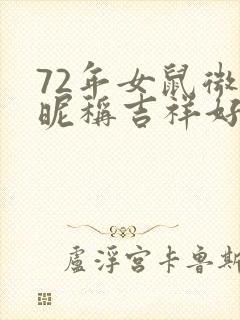 72年女鼠微
昵稱吉祥好
盧浮宮卡魯斯